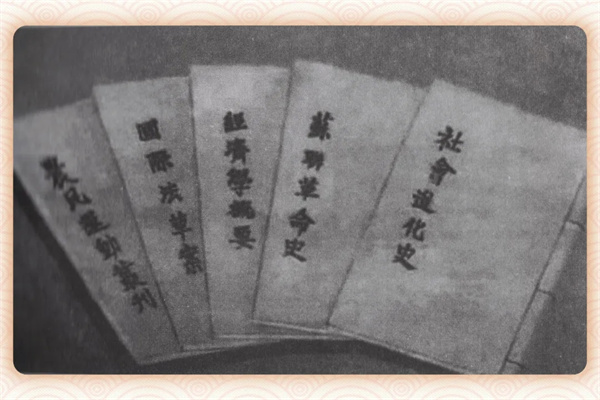 社會進化史
蘇聯革命史
經濟學概要
國際法草案
農民運動叢刊